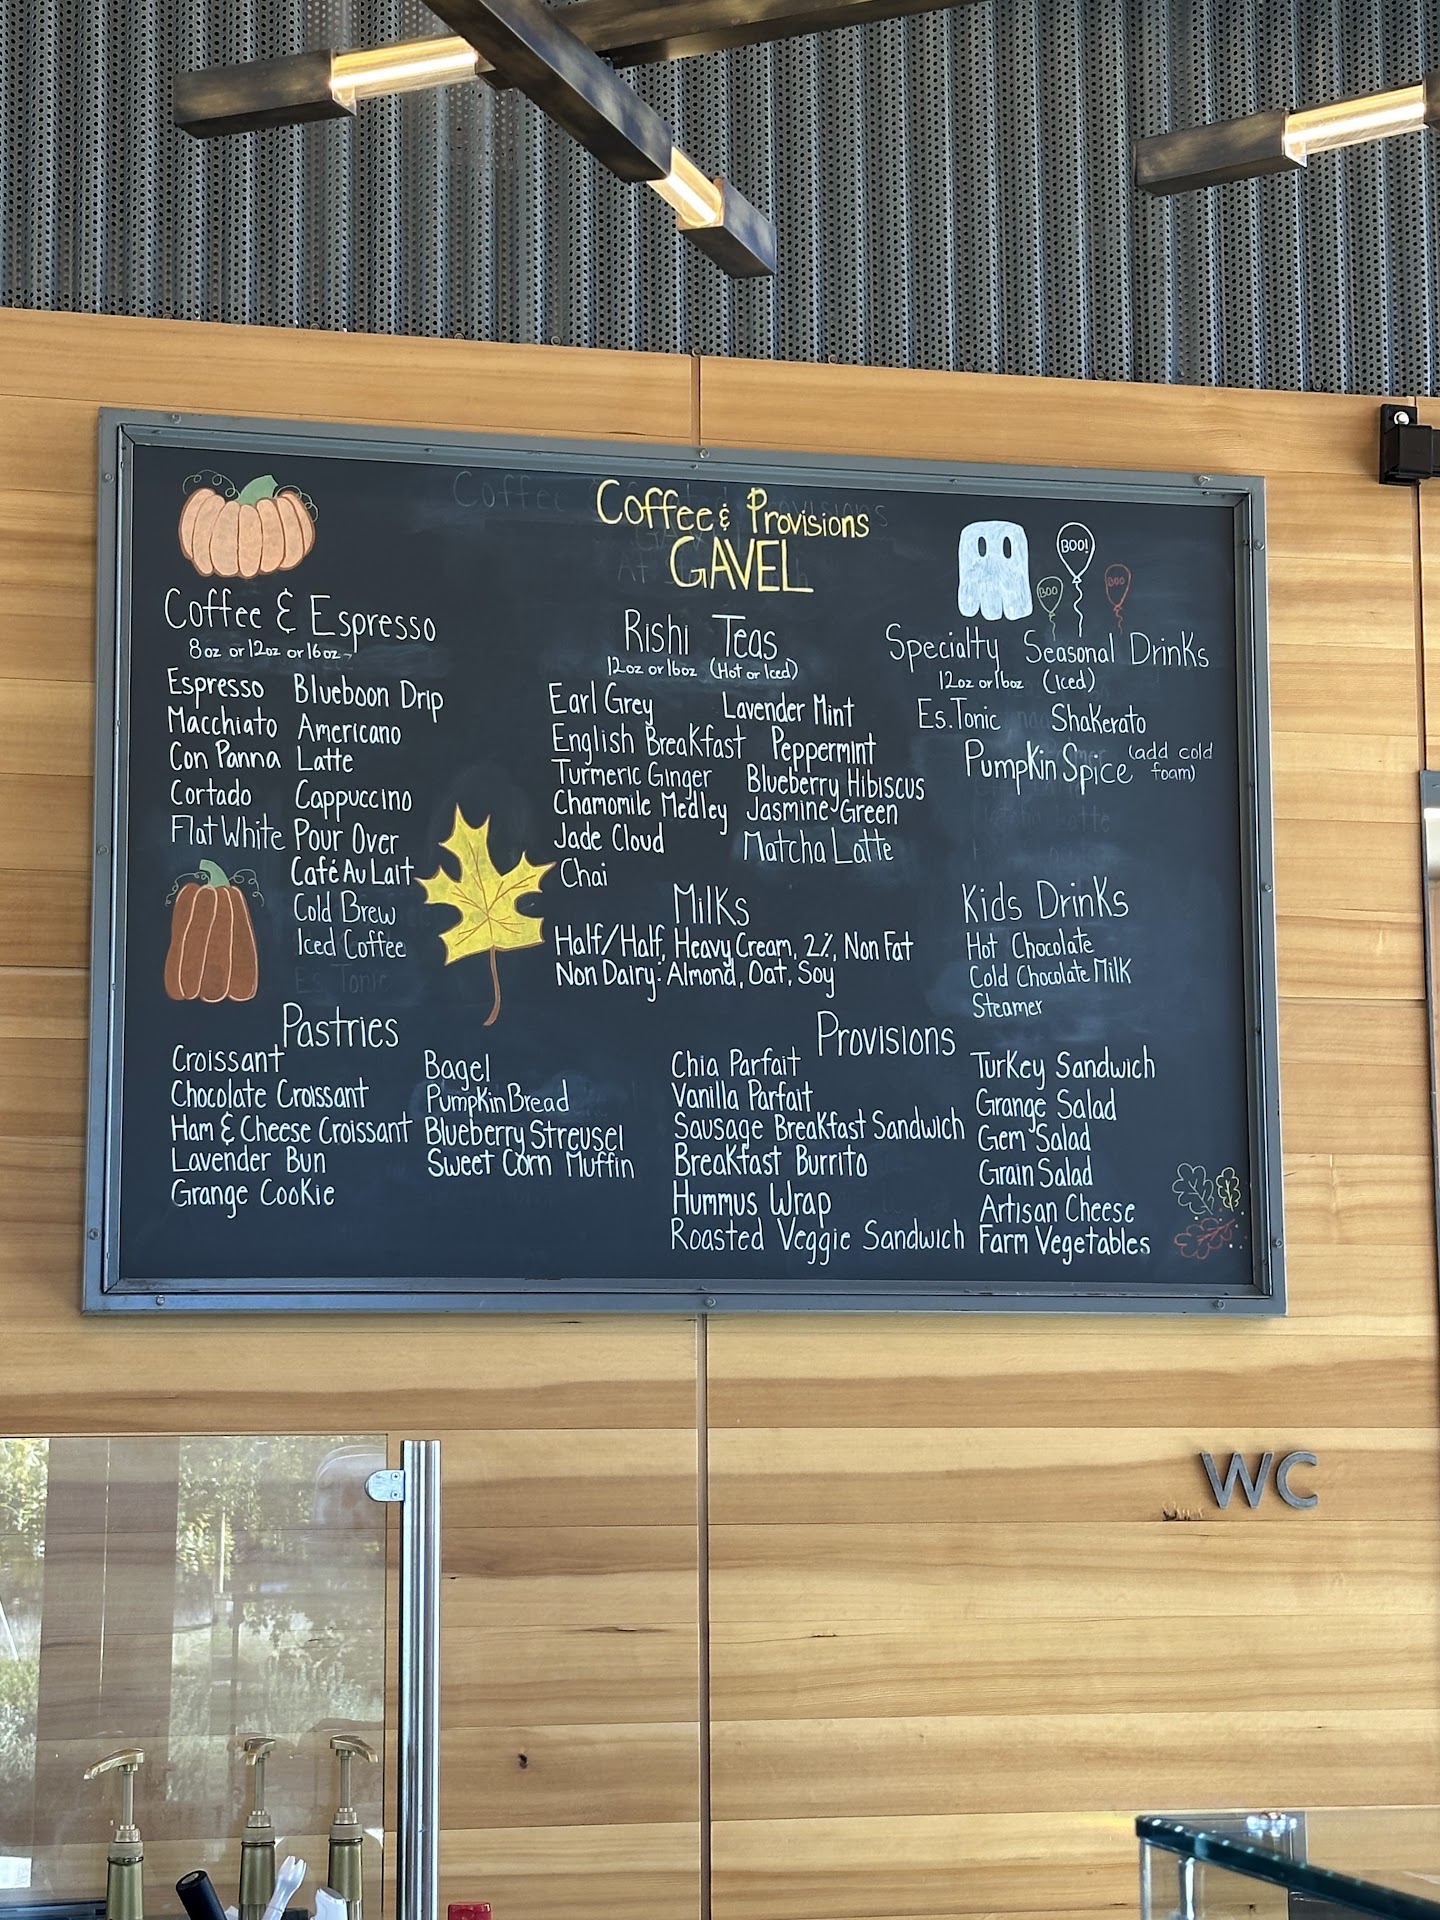 Coffee & Provisions
GAVEL
BOO!
BOO
BOO
Coffee & Espresso
8oz or 12oz or 16oz
Espresso
Macchiato
Con Panna
Cortado
Flat White
Blueboon Drip
Americano
Latte
Cappuccino
Pour Over
Café Au Lait
Cold Brew
Iced Coffee
Es. Tonic
Rishi Teas
12oz or 16oz (Hot or Iced)
Earl Grey
English Breakfast
Turmeric Ginger
Chamomile Medley
Jade Cloud
Chai
Lavender Mint
Peppermint
Blueberry Hibiscus
Jasmine Green
Matcha Latte
Specialty Seasonal Drinks
12oz or 16oz (Iced)
Es. Tonic Shakerato
Pumpkin Spice (add cold
foam)
Milks
Half/Half, Heavy Cream, 2%, Non Fat
Non Dairy: Almond, Oat, Soy
Kids Drinks
Hot Chocolate
Cold Chocolate Milk
Steamer
Pastries
Croissant
Chocolate Croissant
Ham & Cheese Croissant
Lavender Bun
Grange Cookie
Bagel
Pumpkin Bread
Blueberry Streusel
Sweet Corn Muffin
Provisions
Chia Parfait
Vanilla Parfait
Sausage Breakfast Sandwich
Breakfast Burrito
Hummus Wrap
Roasted Veggie Sandwich
Turkey Sandwich
Grange Salad
Gem Salad
Grain Salad
Artisan Cheese
Farm Vegetables
WC